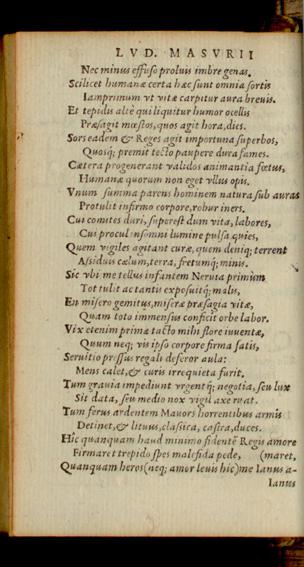 LVD. MASVRII
Nec minus effuso proluis imbre genas.
Scilicet humanæ certa hæc sunt omnia sortis
Iamprimum vt vitæ carpitur aura breuis.
Et tepidis altè qui liquitur humor ocellis
Præsagit mœstos, quos agit hora, dies.
Sors eadem & Reges agit importuna superbos,
Quosq; premit tecto paupere dura fames.
Cætera progenerant validos animantia fœtus,
Humanæ quorum non eget vllus opis.
Vnum summa parens hominem natura sub auras
Protulit infirmo corpore, robur iners.
Cui comites dari, superest dum vita, labores,
Cui procul insomni lumine pulsa quies,
Quem vigiles agitant curæ, quem deniq; terrent
Assiduis cælum, terra, fretumq; minis.
Sic vbi me tellus infantem Neruia primùm
Tot tulit ac tantis exposuitq; malis,
En misero gemitus, miseræ præsagia vitæ,
Quam toto immensius conficit orbe labor.
Vix etenim primæ tacto mihi flore iuuentæ,
Quum neq; vis ipso corpore firma satis,
Seruitio pressus regali deferor aula:
Mens calet, & curis irrequieta furit.
Tum grauia impediunt vrgentq; negotia, seu lux
Sit data, seu medio nox vigil axe ruat.
Tum ferus ardentem Mauors horrentibus armis
Detinet, & lituus, classica, castra, duces.
Hîc quanquam haud minimo fidentē Regis amore
Firmaret trepido spes malefida pede, (maret,
Quanquam heros (neq; amor leuis hic) me Ianus a-
Ianus